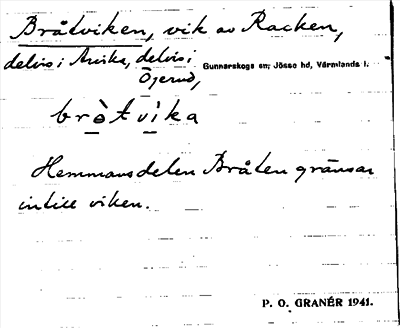 Bråtviken, vik av Racken,
delvis i Arvika, delvis i
Öjerud, Gunnarskogs sn; Jösse hd, Värmlands l.
bròtvìka
Hemmansdelen Bråten gränsar
intill viken.
P. O. GRANÉR 1941.